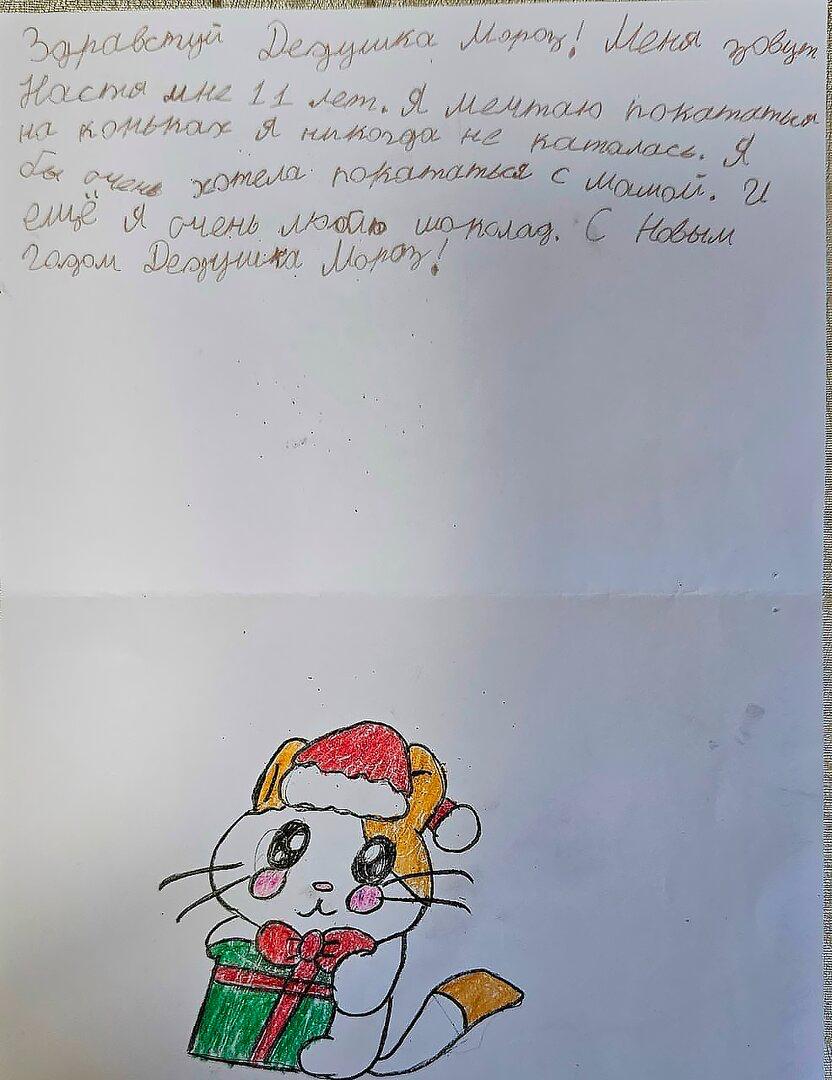 Здравстуй Дедушка Мороз! Меня зовут
Настя мне 11 лет. Я мечтаю покататься
на коньках я никогда не каталась. Я
бы очень хотела покататься с мамой. И
ещё я очень люблю шоколад. С Новым
годом Дедушка Мороз!